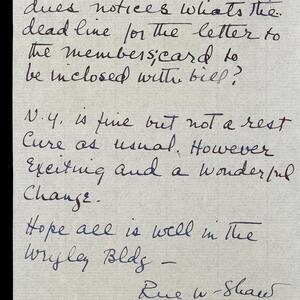 dues notices whats the
deadline for the letter to
the members; card to
be inclosed with bill?
N.Y. is fine but not a rest
Cure as usual. However
Exciting and a Wonderful
Change.
Hope all is well in the
Wrigley Bldg —
Rue W-Shaw